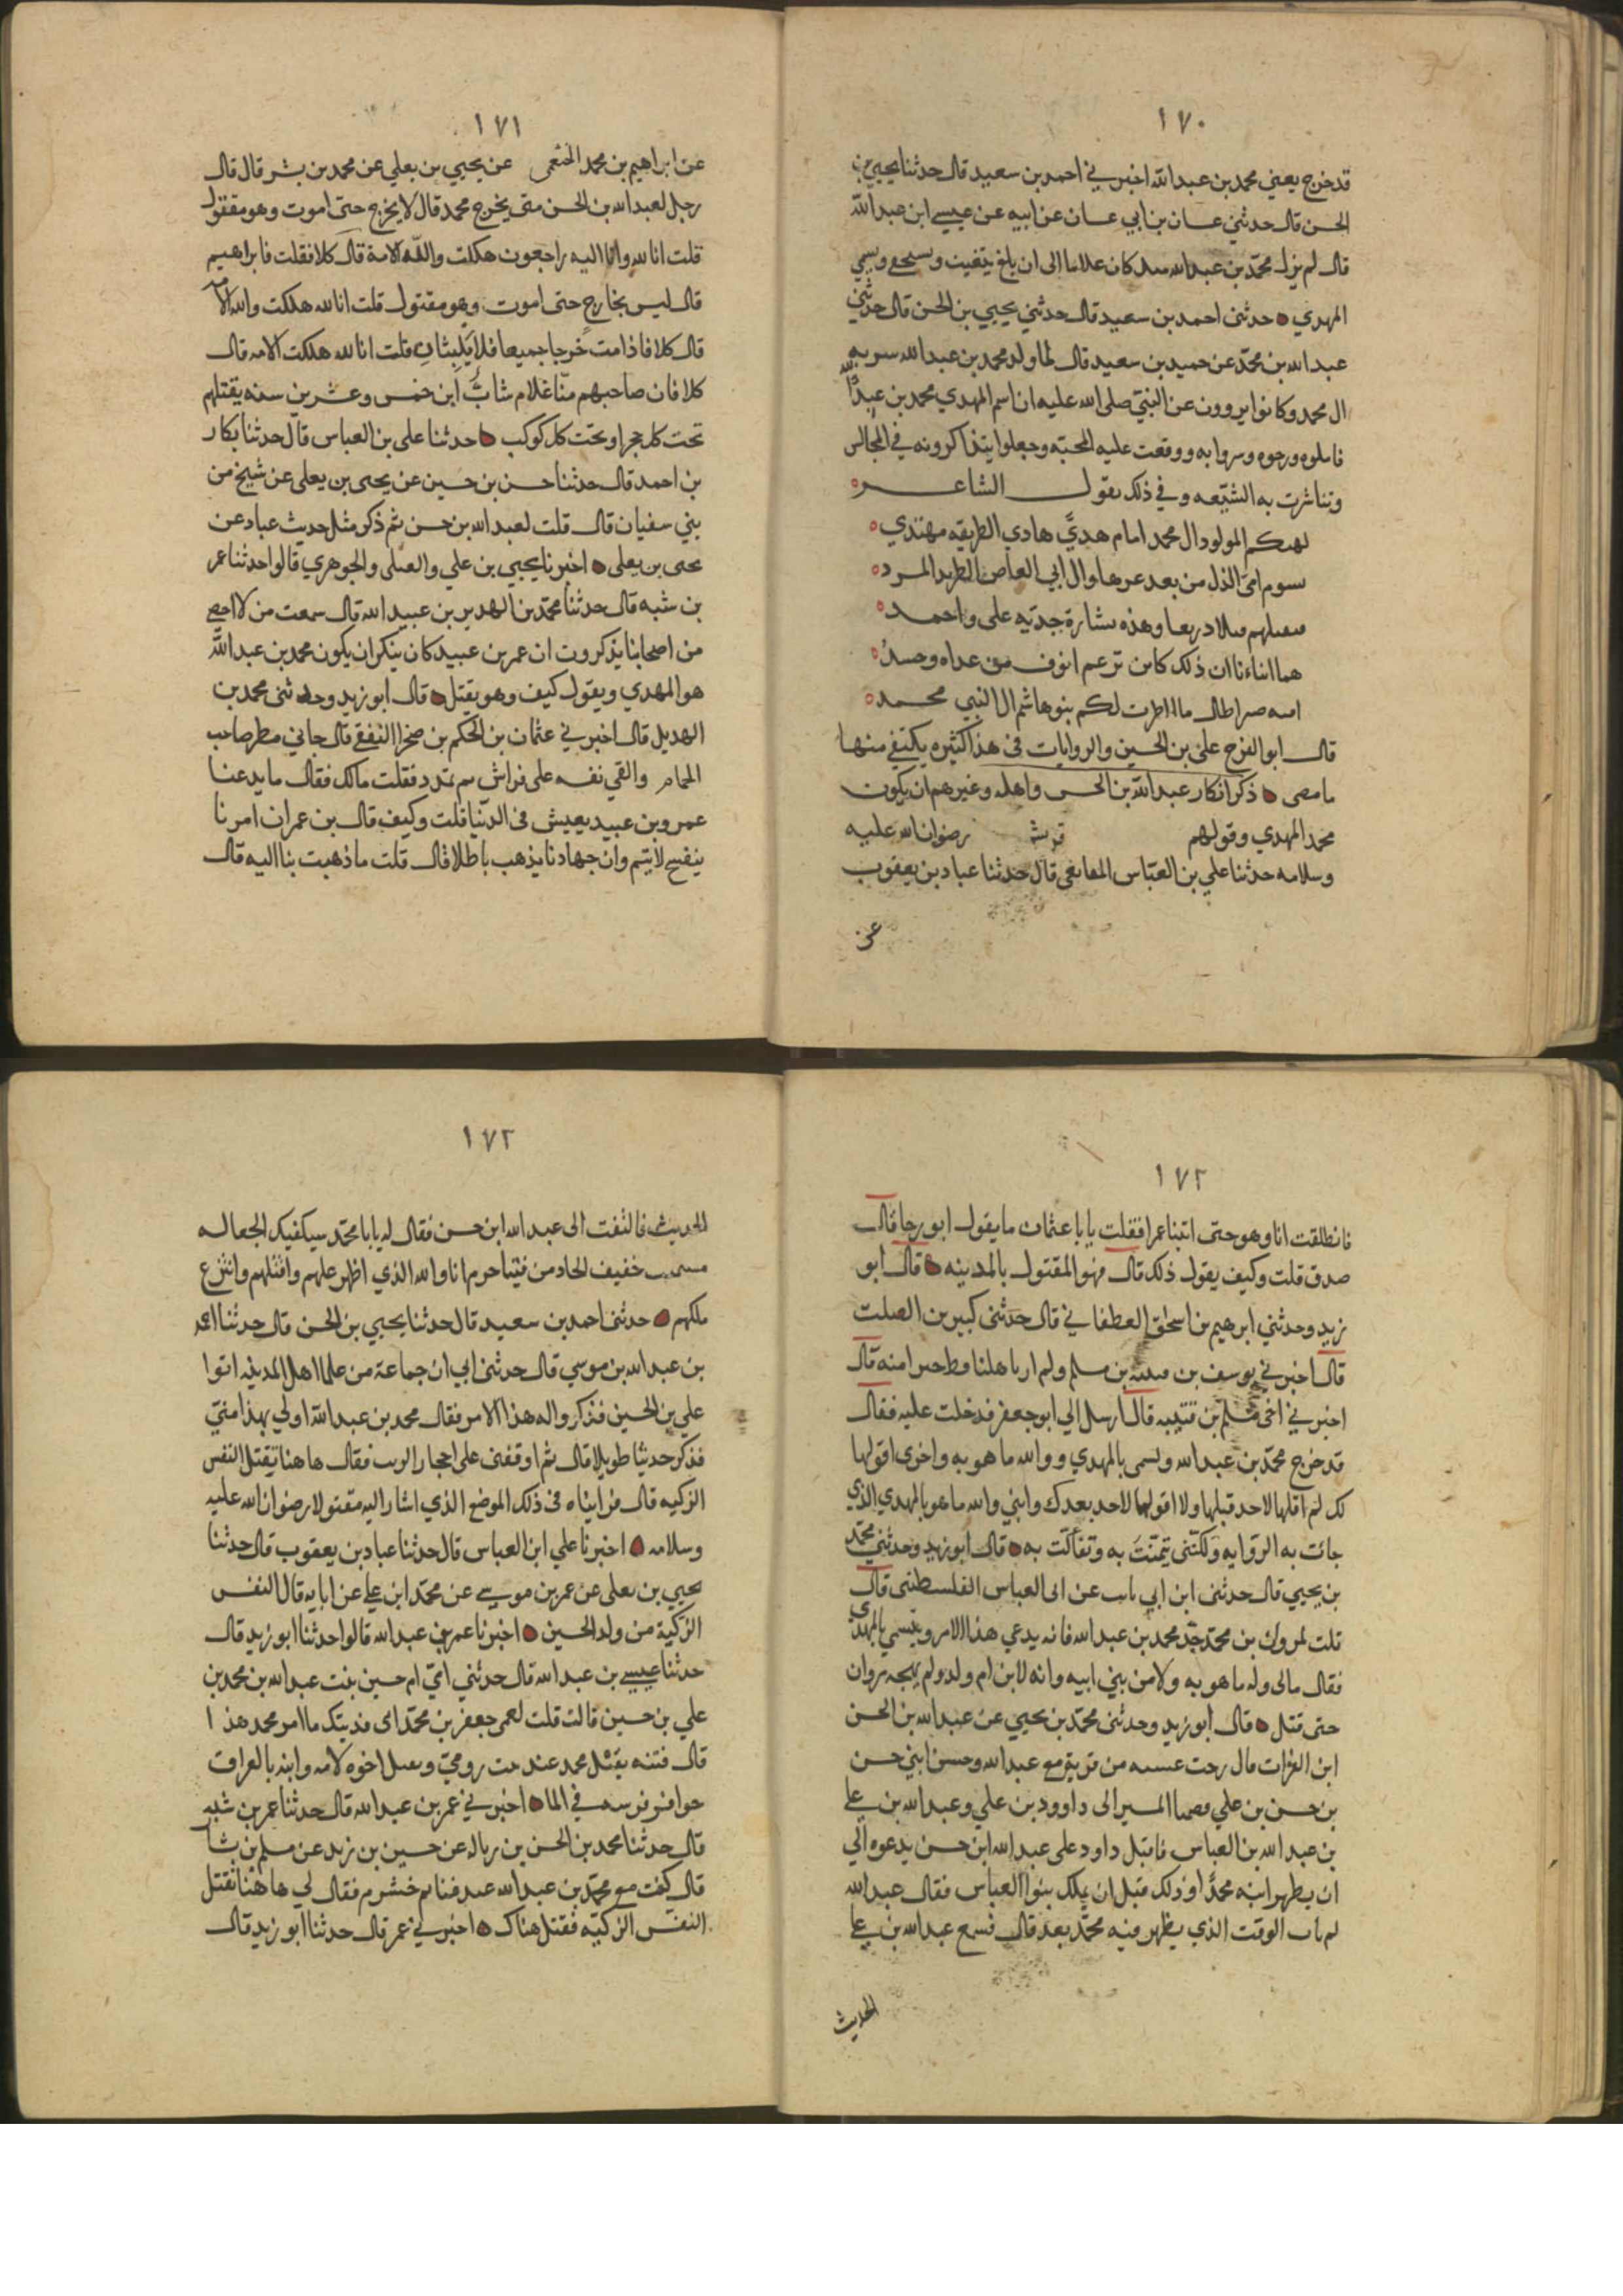 ١٧٠
قد خرج يعني محمد بن عبد الله اخبرني احمد بن سعيد قال حدثنا يحيى بن
الحسن قال حدثني غسان بن ابي غسان عن ابيه عن عيسى ابن عبد الله
قال لم يزل محمد بن عبد الله منذ كان غلاما الى ان بلغ يتغيب ويستخفي ويسمي
المهدي حدثني احمد بن سعيد قال حدثني يحيى بن الحسن قال حدثني
عبد الله بن محمد عن حميد بن سعيد قال لما ولد محمد بن عبد الله سر به
ال محمد وكانوا يروون عن النبي صلى الله عليه ان اسم المهدي محمد بن عبد الله
فاملوه ورجوه وسروا به ووقعت عليه المحبه وجعلوا يتذاكرونه في المجالس
وتباشرت به الشيعه وفي ذلك يقول الشاعر
ليهنكم المولود ال محمد امام هدي هادي الطريقه مهتدي
الذل من بعد عزها وال ابي العاص الطريد المسرد
وهذه بشارة جديه علي واحمد
هما انباءنا ان ذلك كاين برغم انوف من عداه وحسد
بنو هاشم ال النبي محمد
قال ابو الفرج علي بن الحسين والروايات في هذا كثيره يكتفى منها
ما مضى ذكر انكار عبد الله بن الحسن واهله وغيرهم ان يكون
محمد المهدي وقولهم رضوان الله عليه
وسلامه حدثنا علي بن العباس المقانعي قال حدثنا عباد بن يعقوب
عن
١٧١
عن ابراهيم بن محمد الخثعمي عن يحيي بن يعلي عن محمد بن بشر قال قال
رجل لعبد الله بن الحسن متى يخرج محمد قال لا يخرج حتى اموت وهو مقتول
قلت انا لله وانا اليه راجعون هلكت والله الامة قال كلا فقلت فابراهيم
قال ليس بخارج حتى اموت وهو مقتول قلت انا لله هلكت والله الامه
قال كلا فاذا مت خرجا جميعا فلا يلبثان قلت انا لله هلكت الامه قال
كلا فان صاحبهم منا غلام شاب ابن خمس وعشرين سنه يقتلهم
تحت كل حجر او تحت كل كوكب حدثنا علي بن العباس قال حدثنا بكار
بن احمد قال حدثنا حسن بن حسين عن يحيى بن يعلى عن شيخ من
بني سفيان قال قلت لعبد الله بن حسن ثم ذكر مثل حديث عباد عن
يحيى بن يعلى اخبرنا يحيي بن علي والعتكي والجوهري قالوا حدثنا عمر
بن شبه قال حدثنا محمد بن الهديل بن عبيد الله قال سمعت من لا احصي
من اصحابنا يذكرون ان عمر بن عبيد كان ينكر ان يكون محمد بن عبد الله
هو المهدي ويقول كيف وهو يقتل قال ابو زيد وحدثني محمد بن
الهديل قال اخبرني عثمان بن الحكم بن صخر الثقفي قال جاني مطر صاحب
الحمام والقي نفسه على فراش فقلت مالك فقال ما يدعنا
عمرو بن عبيد يعيش في الدنيا قلت وكيف قال بن عمران امرنا
لا يتم وان جهادنا يذهب باطلا قال قلت ما ذهبت بنا اليه قال
١٧٢
فانطلقت انا وهو حتى اتينا عمرا فقلت يابا عثمان ما يقول ابو رجا قال
صدق قلت وكيف يقول ذلك قال فهو المقتول بالمدينه قال ابو
زيد وحدثني ابرهيم بن اسحق الغطفاني قال حدثني كبير بن الصلت
قال اخبرني يوسف بن قتيبه بن مسلم ولم ار باهلنا منه قال
اخبرني اخي مسلم بن قتيبه قال ارسل الي ابو جعفر فدخلت عليه فقال
قد خرج محمد بن عبد الله وتسمى بالمهدي ووالله ما هو به واخرى اقولها
لك لم اقلها لاحد قبلها ولا اقولها لاحد بعدك وابني والله ما هو بالمهدي الذي
جائت به الروايه ولكنني تيمنت به وتفالت به قال ابو زيد وحدثني محمد
بن يحيي قال حدثني ابن ابي ثابت عن ابي العباس الفلسطيني قال
قلت لمروان بن محمد جد محمد بن عبد الله فانه يدعي هذا الامر ويتسمي بالمهدي
فقال مالي وله ما هو به ولا من بني ابيه وانه لابن ام ولد ولم يهجه مروان
حتى قتل قال ابو زيد وحدثني محمد بن يحيي عن عبد الله بن الحسن
ابن الفرات قال رحت عشيه من قريه مع عبد الله وحسن ابني حسن
بن حسن بن علي المسير الى داوود بن علي وعبد الله بن علي
بن عبد الله بن العباس فاقبل داود على عبد الله ابن حسن يدعوه الي
ان يظهر ابنه محمدا وذلك قبل ان يملك بنوا العباس فقال عبد الله
لم يات الوقت الذي يظهر فيه محمد بعد قال فسمع عبد الله بن علي
الحديث
١٧٢
الحديث فالتفت الى عبد الله ابن حسن فقال له يابا محمد سيكفيك الجعاله
خفيف الحاد من فتيا حرم انا والله الذي اظهر عليهم واقتلهم وانتزع
ملكهم حدثني احمد بن سعيد قال حدثنا يحيي بن الحسن قال حدثنا احمد
بن عبد الله بن موسي قال حدثني ابي ان جماعة من علما اهل المدينه اتوا
علي بن الحسين فذكروا له هذا الامر فقال محمد بن عبد الله اولي بهذا مني
فذكر حديثا طويلا قال ثم اوقفني على احجار الزيت فقال هاهنا تقتل النفس
الزكيه قال فرايناه في ذلك الموضع الذي اشار اليه مقتولا رضوان الله عليه
وسلامه اخبرنا علي ابن العباس قال حدثنا عباد بن يعقوب قال حدثنا
يحيي بن يعلى عن عمر بن موسى عن محمد ابن علي عن ابايه قال النفس
الزكية من ولد الحسين اخبرنا عمر بن عبد الله قالوا حدثنا ابو زيد قال
حدثنا عيسى بن عبد الله قال حدثني امي ام حسين بنت عبد الله بن محمد بن
علي بن حسين قالت قلت لعمي جعفر بن محمد اني فديتك ما امر محمد هذا
قال فتنه يقتل محمد عند بيت رومي ويقتل اخوه لامه وابيه بالعراق
حوافر فرسه في الما اخبرني عمر بن عبد الله قال حدثنا عمر بن شبه
قال حدثنا محمد بن الحسن بن زباله عن حسين بن زيد عن مسلم بن
قال كنت مع محمد بن عبد الله خشرم فقال لي هاهنا تقتل
النفس الزكيه فقتل هناك اخبرني عمر قال حدثنا ابو زيد قال